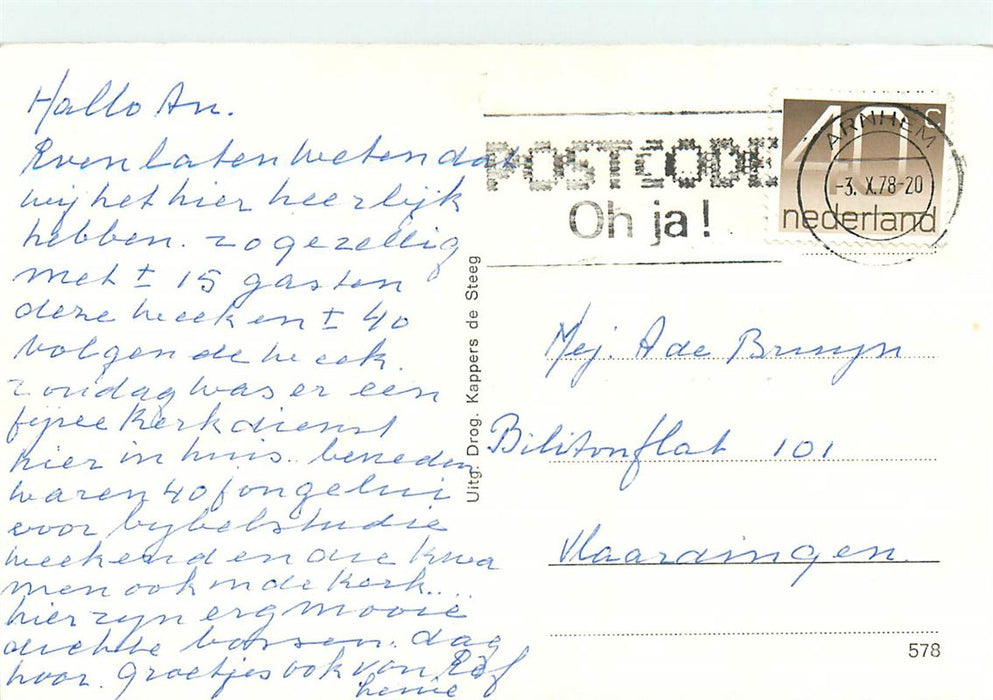 Hallo An.
Even laten weten dat
wij het hier heerlijk
hebben. zo gezellig
met ± 15 gasten
deze week en ± 40
volgende week.
zondag was er een
fijne kerkdienst
hier in huis. beneden
waren 40 jongelui
voor bijbelstudie
weekend en die kwa
men ook in de kerk....
hier zijn erg mooie
dichte bossen. dag
hoor. groetjes ook van
Uitg. Drog. Kappers de Steeg
POSTCODE
Oh ja!
40 c
nederland
ARNHEM
-3. X.78-20
Mej. A de Bruyn
Bilitonflat 101
Vlaardingen.
578